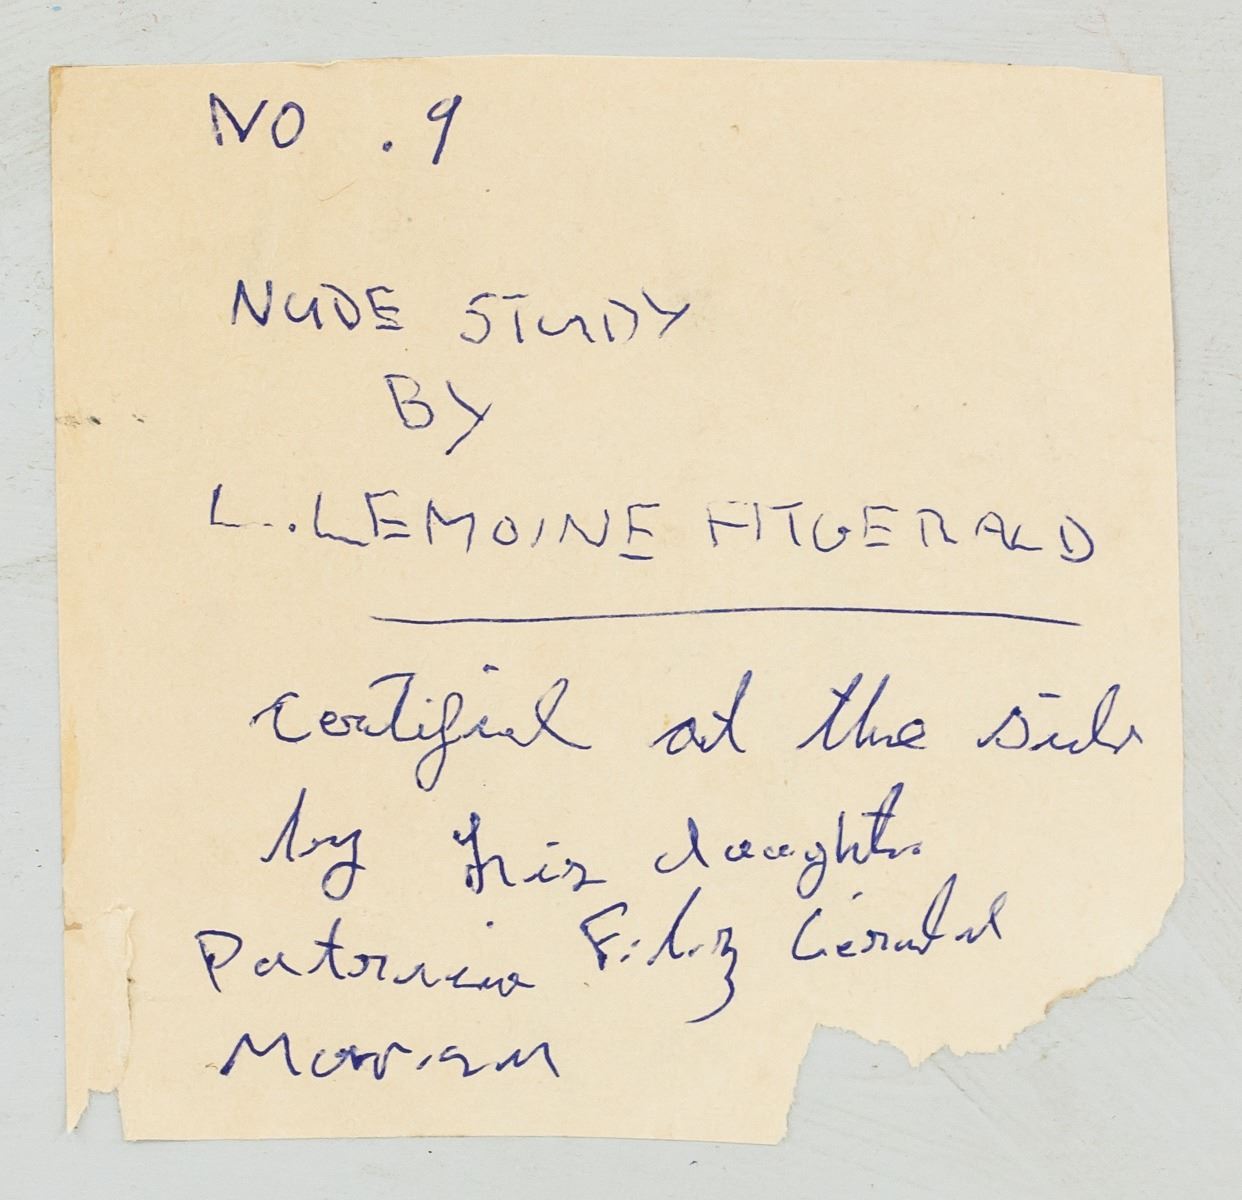 NO . 9
NUDE STUDY
BY
L. LEMOINE FITGERALD
certified at the side
by his daughter
Patricia Fitz Gerald
Morrison